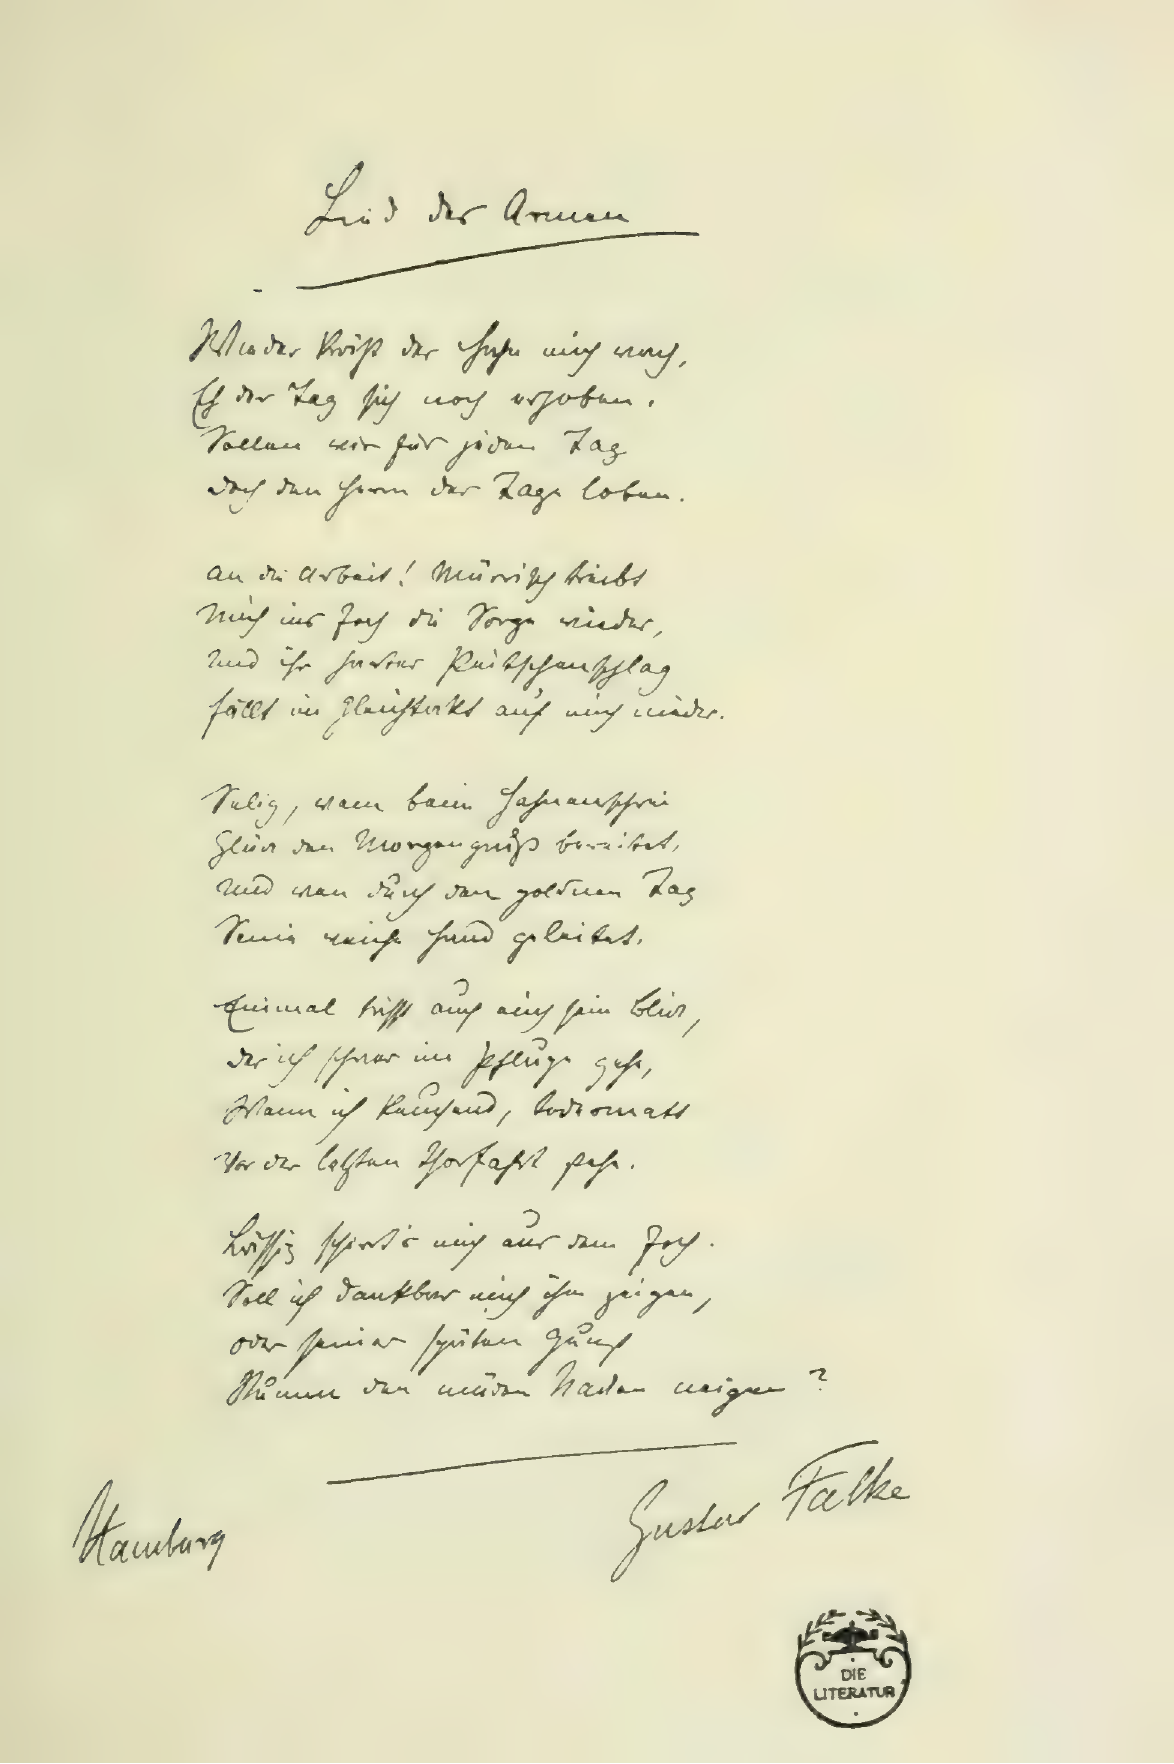 Lied der Armen
Wieder kräht der Hahn mich wach,
Eh der Tag sich noch erhoben.
Sollen wir für jeden Tag
doch den Herrn der Tage loben.
An die Arbeit! Mürrisch treibt
Mich ins Joch die Sorge wieder,
Und ihr harter Peitschenschlag
fällt im Gleichtakt auf mich nieder.
Selig, wem beim Hahnenschrei
Glück den Morgengruß bereitet,
Und wen durch den goldnen Tag
Seine weiche Hand geleitet.
Einmal trifft auch mich sein Blick,
der ich schwer im Pfluge gehe,
Wenn ich keuchend, todesmatt
Vor der letzten Thorfahrt stehe.
Lässig schirrt's mich aus dem Joch.
Soll ich dankbar mich ihm zeigen,
oder seiner späten Gunst
Stumm den müden Nacken neigen?
Hamburg
Gustav Falke
DIE
LITERATUR